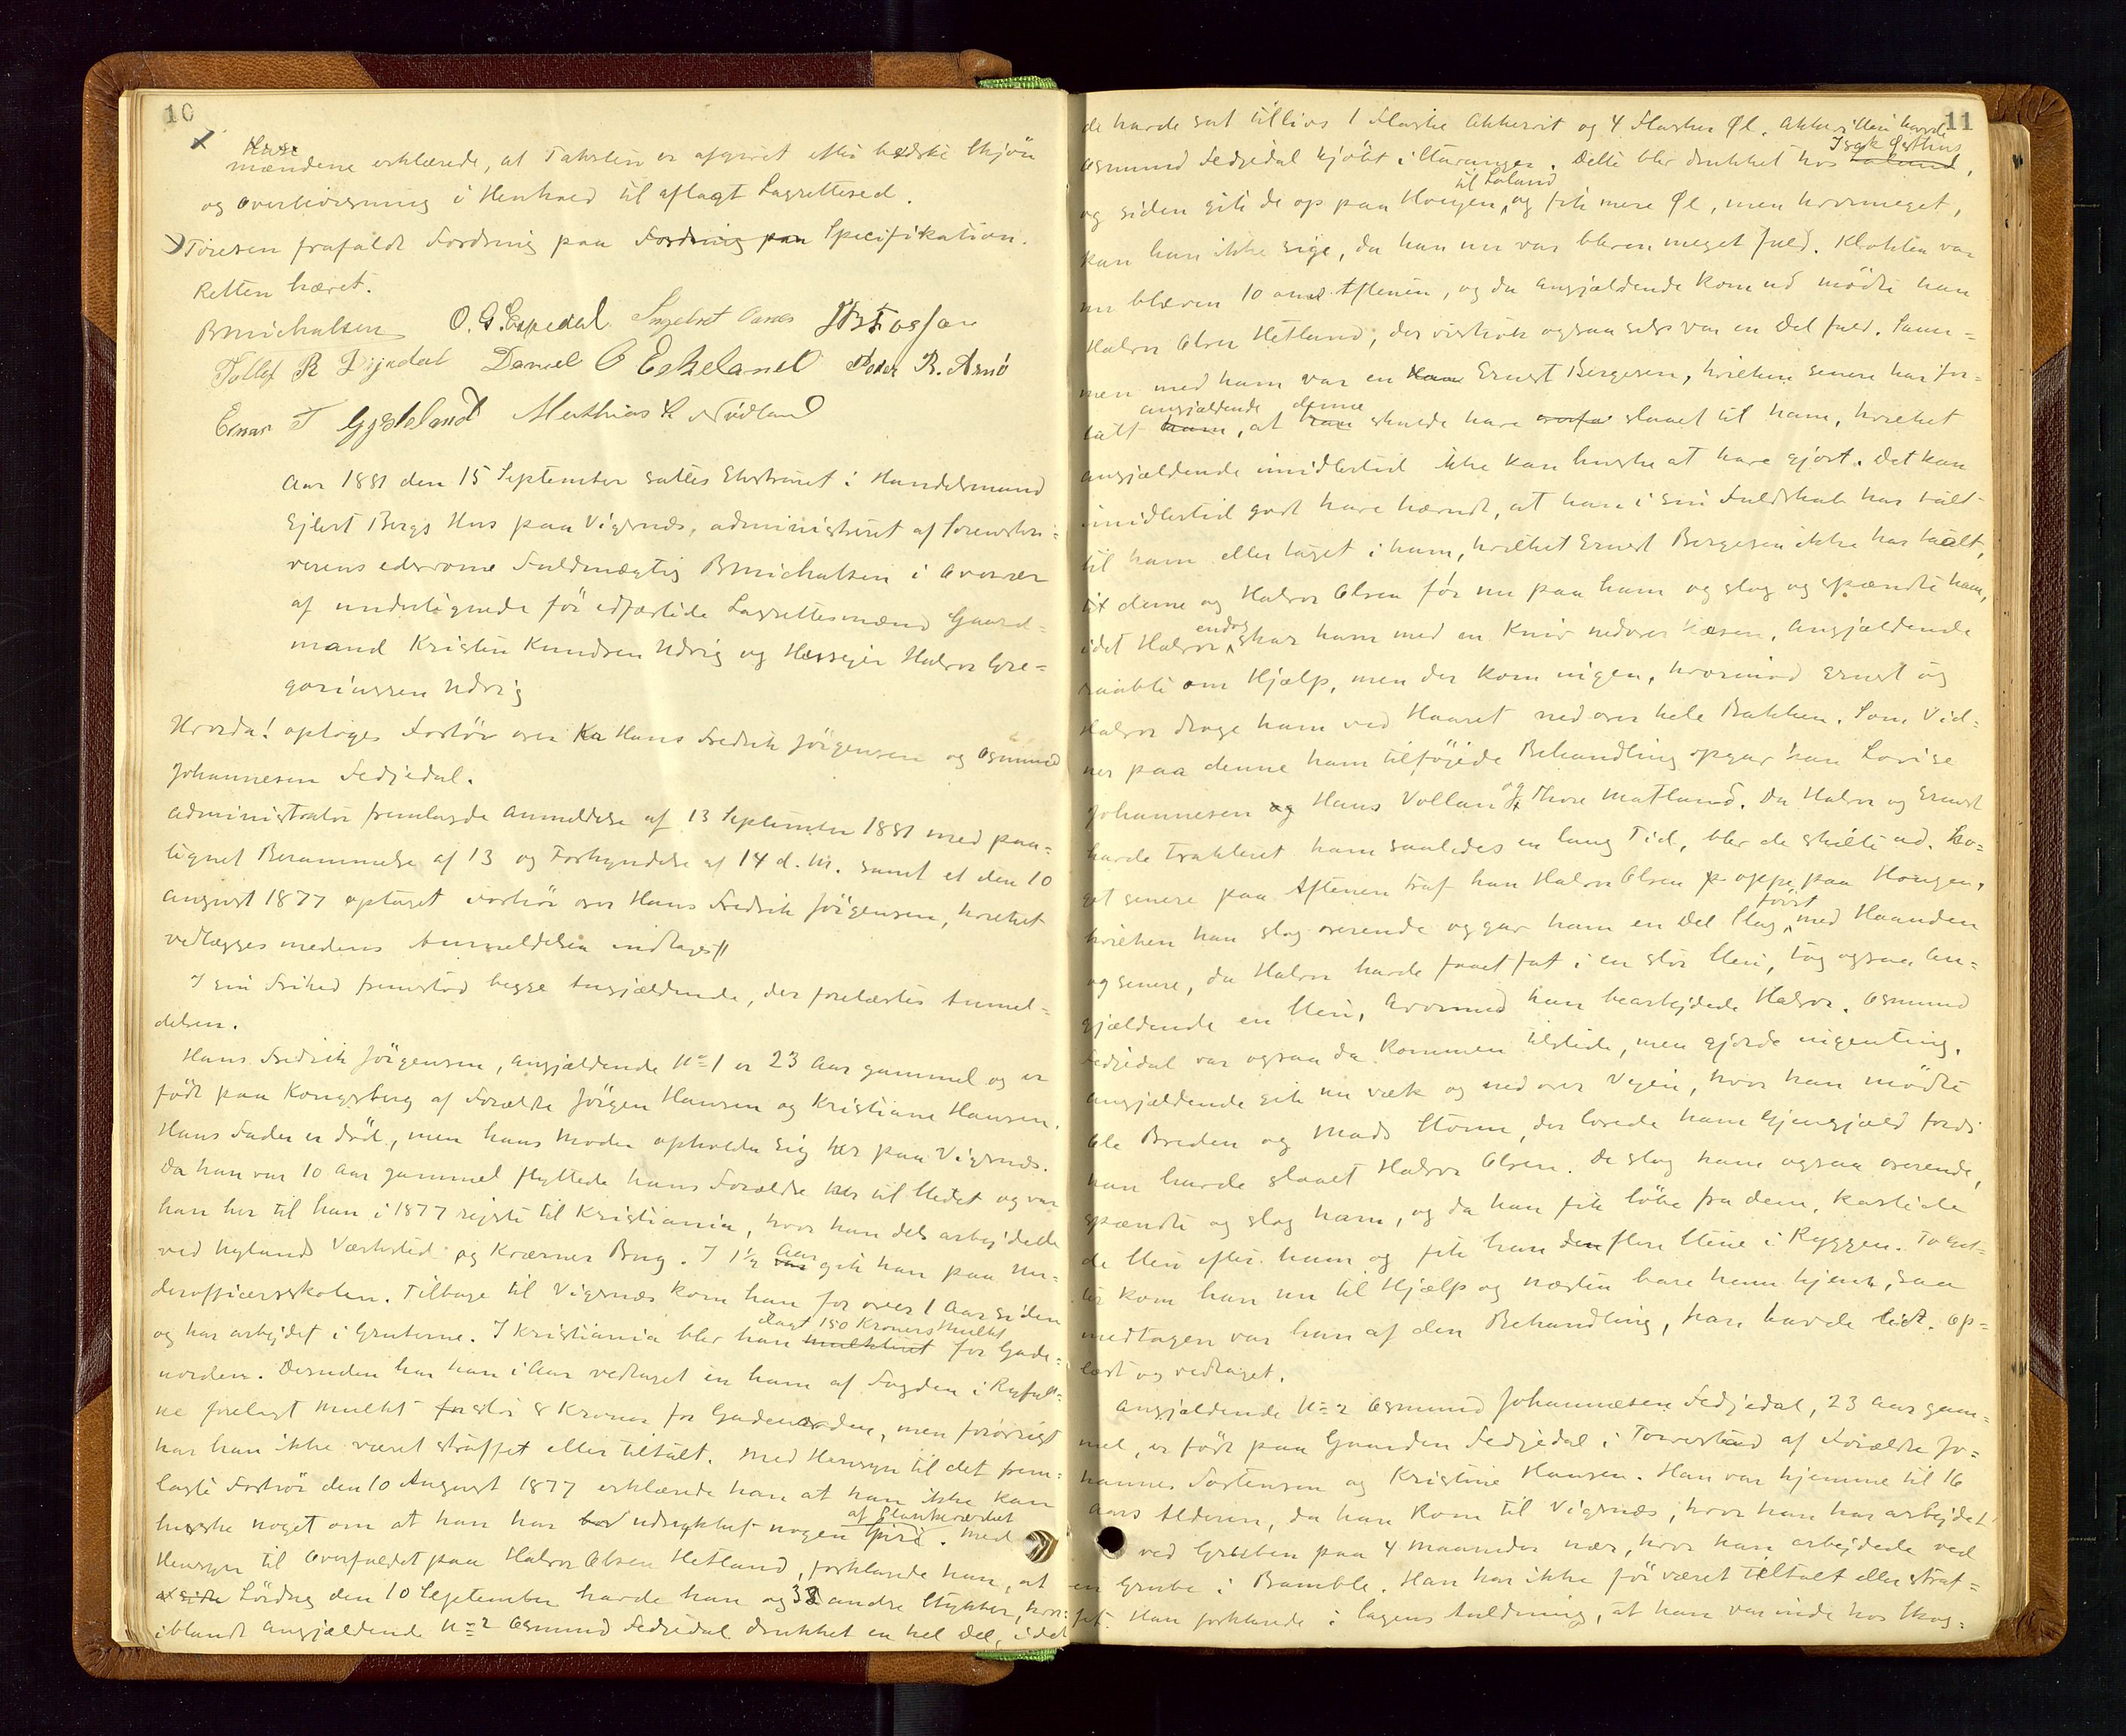 10
mændene erklærede, at Taksten er afgivet efter bedste Skjøn
og Overbevisning i Henhold til aflagt Lagrettesed.
frafaldt Fordring paa Fordring paa Specifikation.
Retten hævet.
BMichalsen O. G. Espedal
Tollef R Daniel O Eskeland Peder R. Arnø
Einar T Gjesteland Mathias L Nudland
Aar 1881 den 15 September sattes Ekstraret i Handelsmand
Ejlert Bergs Hus paa Vigsnæs, administreret af Sorenskri=
verens edsvorne Fuldmægtig BMichalsen i Overvær
af undertegnede før edfæstede Lagrettesmænd Gaard=
mand Kristen Knudsen Udvig og Husejer Halvor Gre=
goriussen Udvig
Hvorda! optoges Forhør over Hans Fredrik Jörgensen og Osmund
Johannesen Fedjedal.
Administrator fremlagde Anmeldelse af 13 September 1881 med paa=
tegnet Berammelse af 13 og Forkyndelse af 14 d. M. samt et den 10
August 1877 optaget Forhör over Hans Fredrik Jörgensen, hvilket
vedlægges medens Anmeldelsen indtages//
I sin Frihed fremstod begge Angjældende, der forelæstes Anmel=
delsen.
Hans Fredrik Jörgensen, Angjældende No 1 er 23 Aar gammel og er
födt paa Kongsberg af Forældre Jörgen Hansen og Kristiane Hansen.
Hans Fader er död, men hans Moder opholder sig her paa Vigsnæs.
Da han var 10 Aar gammel flyttede hans Forældre her til Stedet og var
han her til han i 1877 rejste til Kristiania, hvor han dels arbejdede
ved Nylands Værksted og Kværner Brug. I 1½ Aar gik han paa Un=
derofficersskolen. Tilbage til Vigsnæs kom han for over 1 Aar siden
og har arbejdet i Gruberne. I Kristiania blev han ilagt 150 Kroners Mulkt for Gade=
uorden. Desuden har han i Aar vedtaget en ham af Fogden i Ryfyl=
ke forelagt Mulkt stor 8 Kroner for Gadeuorden, men forövrigt
har han ikke været straffet eller tiltalt. Med Hensyn til det frem=
lagte Forhör den 10 August 1877 erklærede han at han ikke kan
huske noget om at han har udrykket nogen af Plankeværket. Med
Hensyn til Overfaldet paa Halvor Olsen Hetland, forklarede han, at
Lördag den 10 September havde han og 3 andre Stykker, hvor=
iblandt Angjældende No 2 Osmund Fedjedal drukket en hel Del, idet
11
de havde sat tillivs 1 Flaske Akkevit og 4 Flasker Öl. Akkevitten havde
Osmund Fedjedal kjöbt i Stavanger. Dette blev drukket hos Isak Østhus,
og siden gik de op paa Haugen til Loland og fik mere Öl, men hvormeget,
kan han ikke sige, da han nu var bleven meget fuld. Klokken var
nu bleven 10 om Aftenen, og da Angjældende kom ud mödte han
Halvor Olsen Hetland, der vistnok ogsaa selv var en Del fuld. Sam=
men med ham var en Ernst Bergesen, hvilken senere har for=
talt Angjældende, at denne skulde have slaaet til ham, hvilket
Angjældende imidlertid ikke kan huske at have gjort. Det kan
imidlertid godt have hændt, at han i sin Fuldskab har talt
til ham eller taget i ham, hvilket Ernst Bergesen ikke har taalt,
denne og Halvor Olsen för nu paa ham og slog og spændte ham,
idet Halvor endog skar ham med en Kniv nedover Næsen. Angjældende
raabte om Hjælp, men der kom ingen, hvorimod Ernst og
Halvor drog ham ved Haaret ned over hele Bakken. Som Vid=
ner paa denne ham tilföjede Behandling opgav han Lovise
Johannesen Hans Vollan og Thore Matland. Da Halvor og Ernst
havde trakteret ham saaledes en lang Tid, blev de skilte ad. No=
get senere paa Aftenen traf han Halvor Olsen oppe paa Haugen,
hvilken han slog overende og gav ham en Del Slag först med Haanden
og senere, da Halvor havde faaet fat i en stor Sten, tog ogsaa An=
gjældende en Sten, hvormed han bearbejdede Halvor. Osmund
Fedjedal var ogsaa da kommen tilstede, men gjorde ingenting.
Angjældende gik nu væk og ned over Vejen, hvor han mödte
Ole Breden og Mads Stone, der lovede ham Gjengjæld fordi
han havde slaaet Halvor Olsen. De slog ham ogsaa overende,
spændte og slog ham, og da han fik löbe fra dem, kastede
de Sten efter ham og fik han flere Stene i Ryggen. To
kom han nu til Hjælp og næsten bare ham hjem, saa
medtagen var han af den Behandling, han havde lidt. Op=
læst og vedtaget.
Angjældende No 2 Osmund Johannesen Fedjedal, 23 Aar gam=
mel, er födt paa Gaarden Fedjedal i Torvestad af Forældre Jo=
hannes Torstensen og Kristine Hansen. Han var hjemme til 16
Aars Alderen, da han kom til Vigsnæs, hvor han har arbejdet
ved Gruben paa 4 Maaneder nær, hvor han arbejdede ved
en Grube i Bamble. Han har ikke för været tiltalt eller straf=
fet. Han forklarede i Sagens Anledning, at han var inde hos Skog=